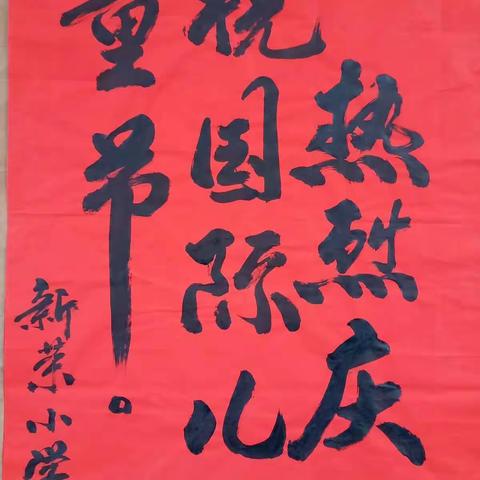 热烈庆
祝国际儿
童节。
新荣小学